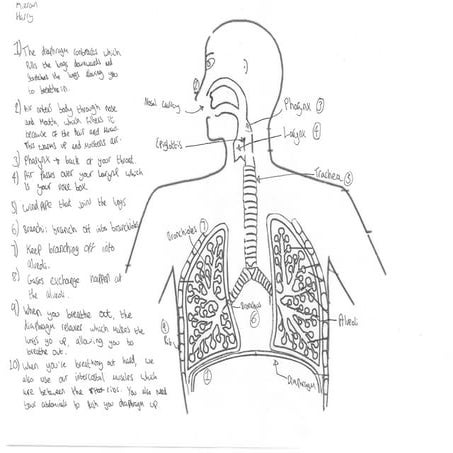 Kieran
Harry
1) The diaphragm contracts which
pulls the lungs downwards and
stretches the lungs allowing you
to breathe in.
2) Air enters body through nose
and Mouth, which filters it
because of the hair and mucus.
This warms up and moistens air.
3) Pharynx → back of your throat.
4) Air passes over your larynx which
is your voice box.
5) Wind Pipe that join the lungs
6) Bronchi branch off into bronchioles
7) Keep branching off into
alveoli.
8) Gases exchange happen at
the alveoli.
9) When you breathe out, the
diaphragm relaxes which makes the
lungs go up, allowing you to
breathe out.
10) When you're breathing out hard, we
also use our intercostal muscles which
are between the ribs. You also need
your abdominals to push you diaphragm up
Nasal cavity
Epiglottis
Pharynx 3
Larynx 4
Trachea 5
Bronchioles 7
Bronchus
6
Alveoli
8
Rib
1
Diaphragm
2